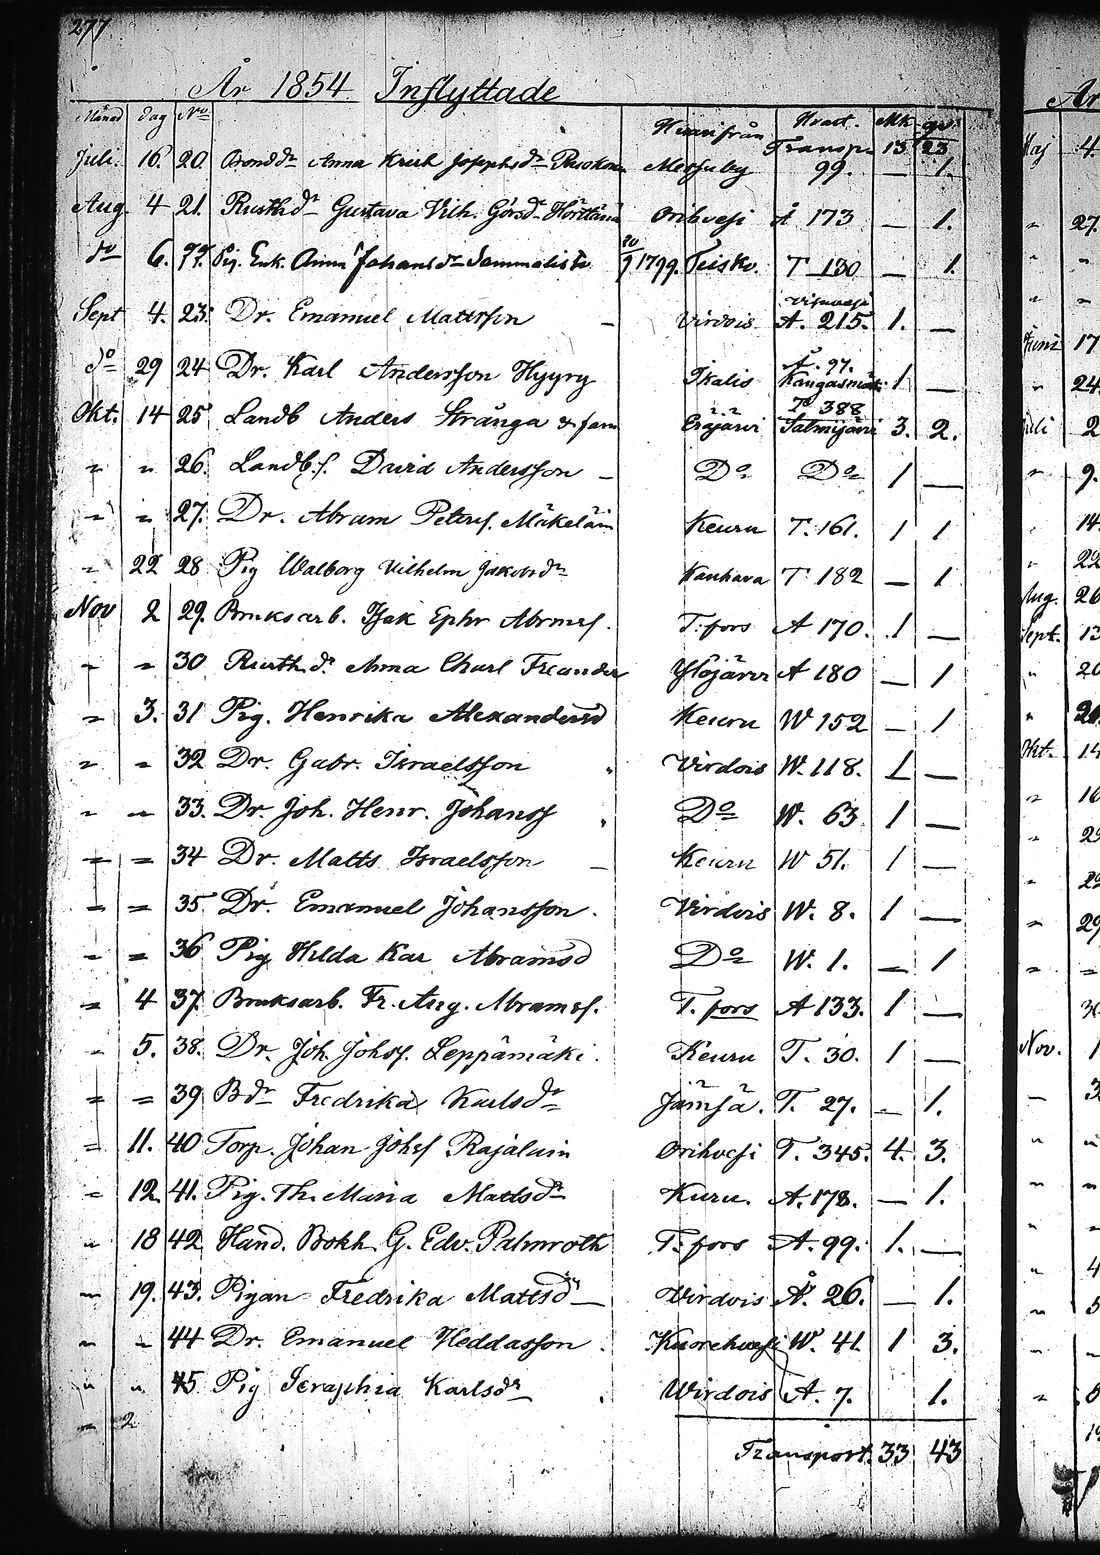 277
År 1854 Inflyttade
Månad dag No Hvarifrån Hvart. Mk. qv.
Transp. 13 23
Juli. 16. 20. Bondedr Anna Krist Josephsdr Messuby 99. — 1.
Aug. 4 21. Rusthdr Gustava Vilh. Görsdr Orihvesi Å 173 — 1.
do 6. 22. Pig. Enk. Anna Johansdr 20/9 1799. Teisko. T 130 — 1.
Sept 4. 23. Dr. Emanuel Mattsson — Virdois Visuvesi A. 215. 1. —
do 29 24 Dr. Karl Andersson Hyyry Ikalis Å. 97. Kangasmäki 1 —
Okt. 14 25 Landb Anders Strånga & fam Eräjärvi T. 388 Salmijärvi 3. 2.
" " 26. Landb.s. David Andersson — Do Do 1 —
" " 27. Dr. Abram Peterss. Mäkeläin Keuru T. 161. 1 1
" 22 28 Pig Walborg Vilhelm Jakobsdr Kauhava T 182 — 1
Nov 2 29. Bruksarb. Isak Ephr Abramss. T:fors A 170. 1 —
" " 30 Rusth.dr Anna Charl Freander Ylöjärvi A 180 — 1
" 3. 31 Pig. Henrika Alexandersd Keuru W 152 — 1
" " 32 Dr. Gabr. Israelsson Virdois W. 118. 1 —
" " 33. Dr. Joh. Henr. Johanss Do W. 63 1 —
" " 34 Dr. Matts Israelsson — Keuru W 51. 1 —
" " 35 Dr. Emanuel Johansson. Virdois W. 8. 1 —
" " 36 Pig Hilda Kar Abramsd Do W. 1. — 1
" 4 37. Bruksarb. Fr. Aug. Abramss. T. fors A 133. 1 —
" 5. 38. Dr. Joh. Johss. Leppämäki. Keuru T. 30. 1 —
" " 39 Bdr Fredrika Karlsdr Jämsä. T. 27. — 1.
" 11. 40 Torp. Johan Johss Rajalain Orihvesi T. 345. 4. 3.
" 12 41. Pig. Th. Maria Mattsdr Kuru. A. 178. — 1.
" 18 42 Hand. Bokh. G. Edv. Palmroth T:fors A. 99. 1. —
" 19. 43. Pigan Fredrika Mattsdr — Virdois Å. 26. — 1.
" " 44 Dr. Emanuel Heddasson. Kuorehvesi W. 41. 1 3.
" " 45 Pig Seraphia Karlsdr. Wirdois A. 7. 1.
" 2
Transport. 33 43
År
Maj 4.
" 27.
" "
" "
Juni 17
" 24.
Juli 2
" 9.
" 14.
" 22
Aug. 26
Sept. 13
" 20
" 20.
Okt. 14
" 16
" 29
" 29
" "
Nov. 1
— 3
" "
" "
" "
" 4
" 5
" "